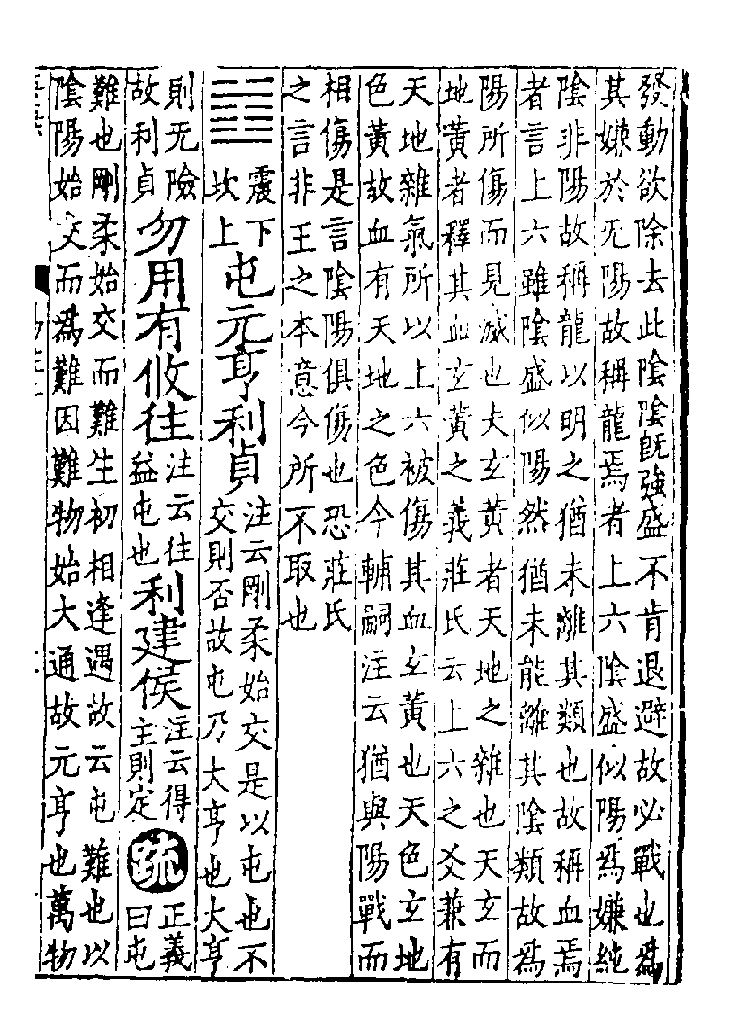 發動欲除去此陰陰旣強盛不肯退避故必戰也爲
其嫌於无陽故稱龍焉者上六陰盛似陽爲嫌純
陰非陽故稱龍以明之猶未離其類也故稱血焉
者言上六雖陰盛似陽然猶未能離其陰類故爲
陽所傷而見滅也夫玄黃者天地之雜也天玄而
地黃者釋其血玄黃之義莊氏云上六之爻兼有
天地雜氣所以上六被傷其血玄黃也天色玄地
色黃故血有天地之色今輔嗣注云猶與陽戰而
相傷是言陰陽俱傷也恐莊氏
之言非王之本意今所不取也
震下坎上屯元亨利貞注云剛柔始交是以屯也不交則否故屯乃大亨也大亨
則无險故利貞勿用有攸往注云往益屯也利建侯注云得主則定疏正義曰屯
難也剛柔始交而難生初相逢遇故云屯難也以
陰陽始交而爲難因難物始大通故元亨也萬物